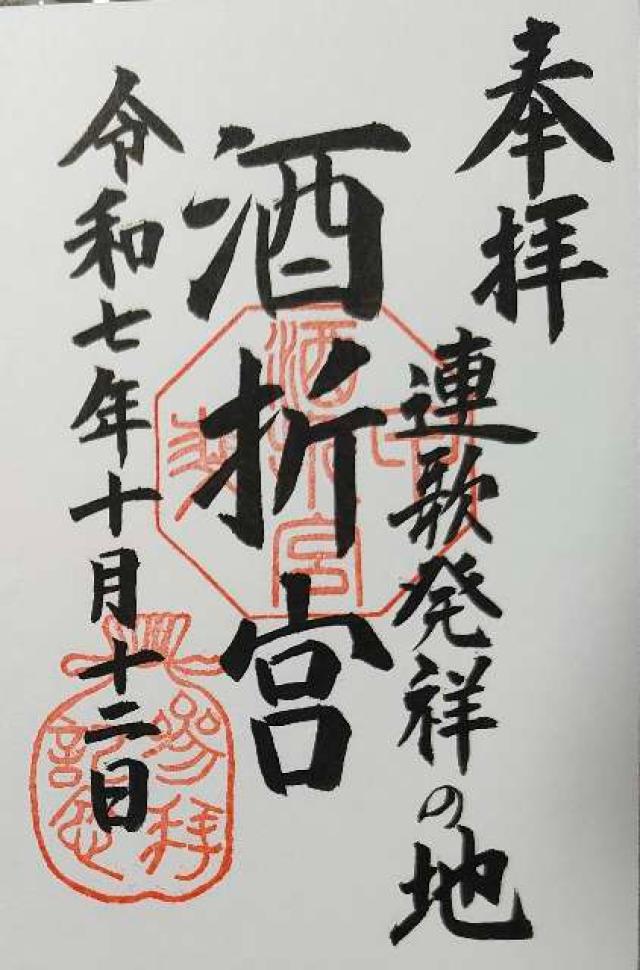 奉拝
連歌発祥の地
酒折宮
令和七年十月十二日
酒折宮
参拝
記念